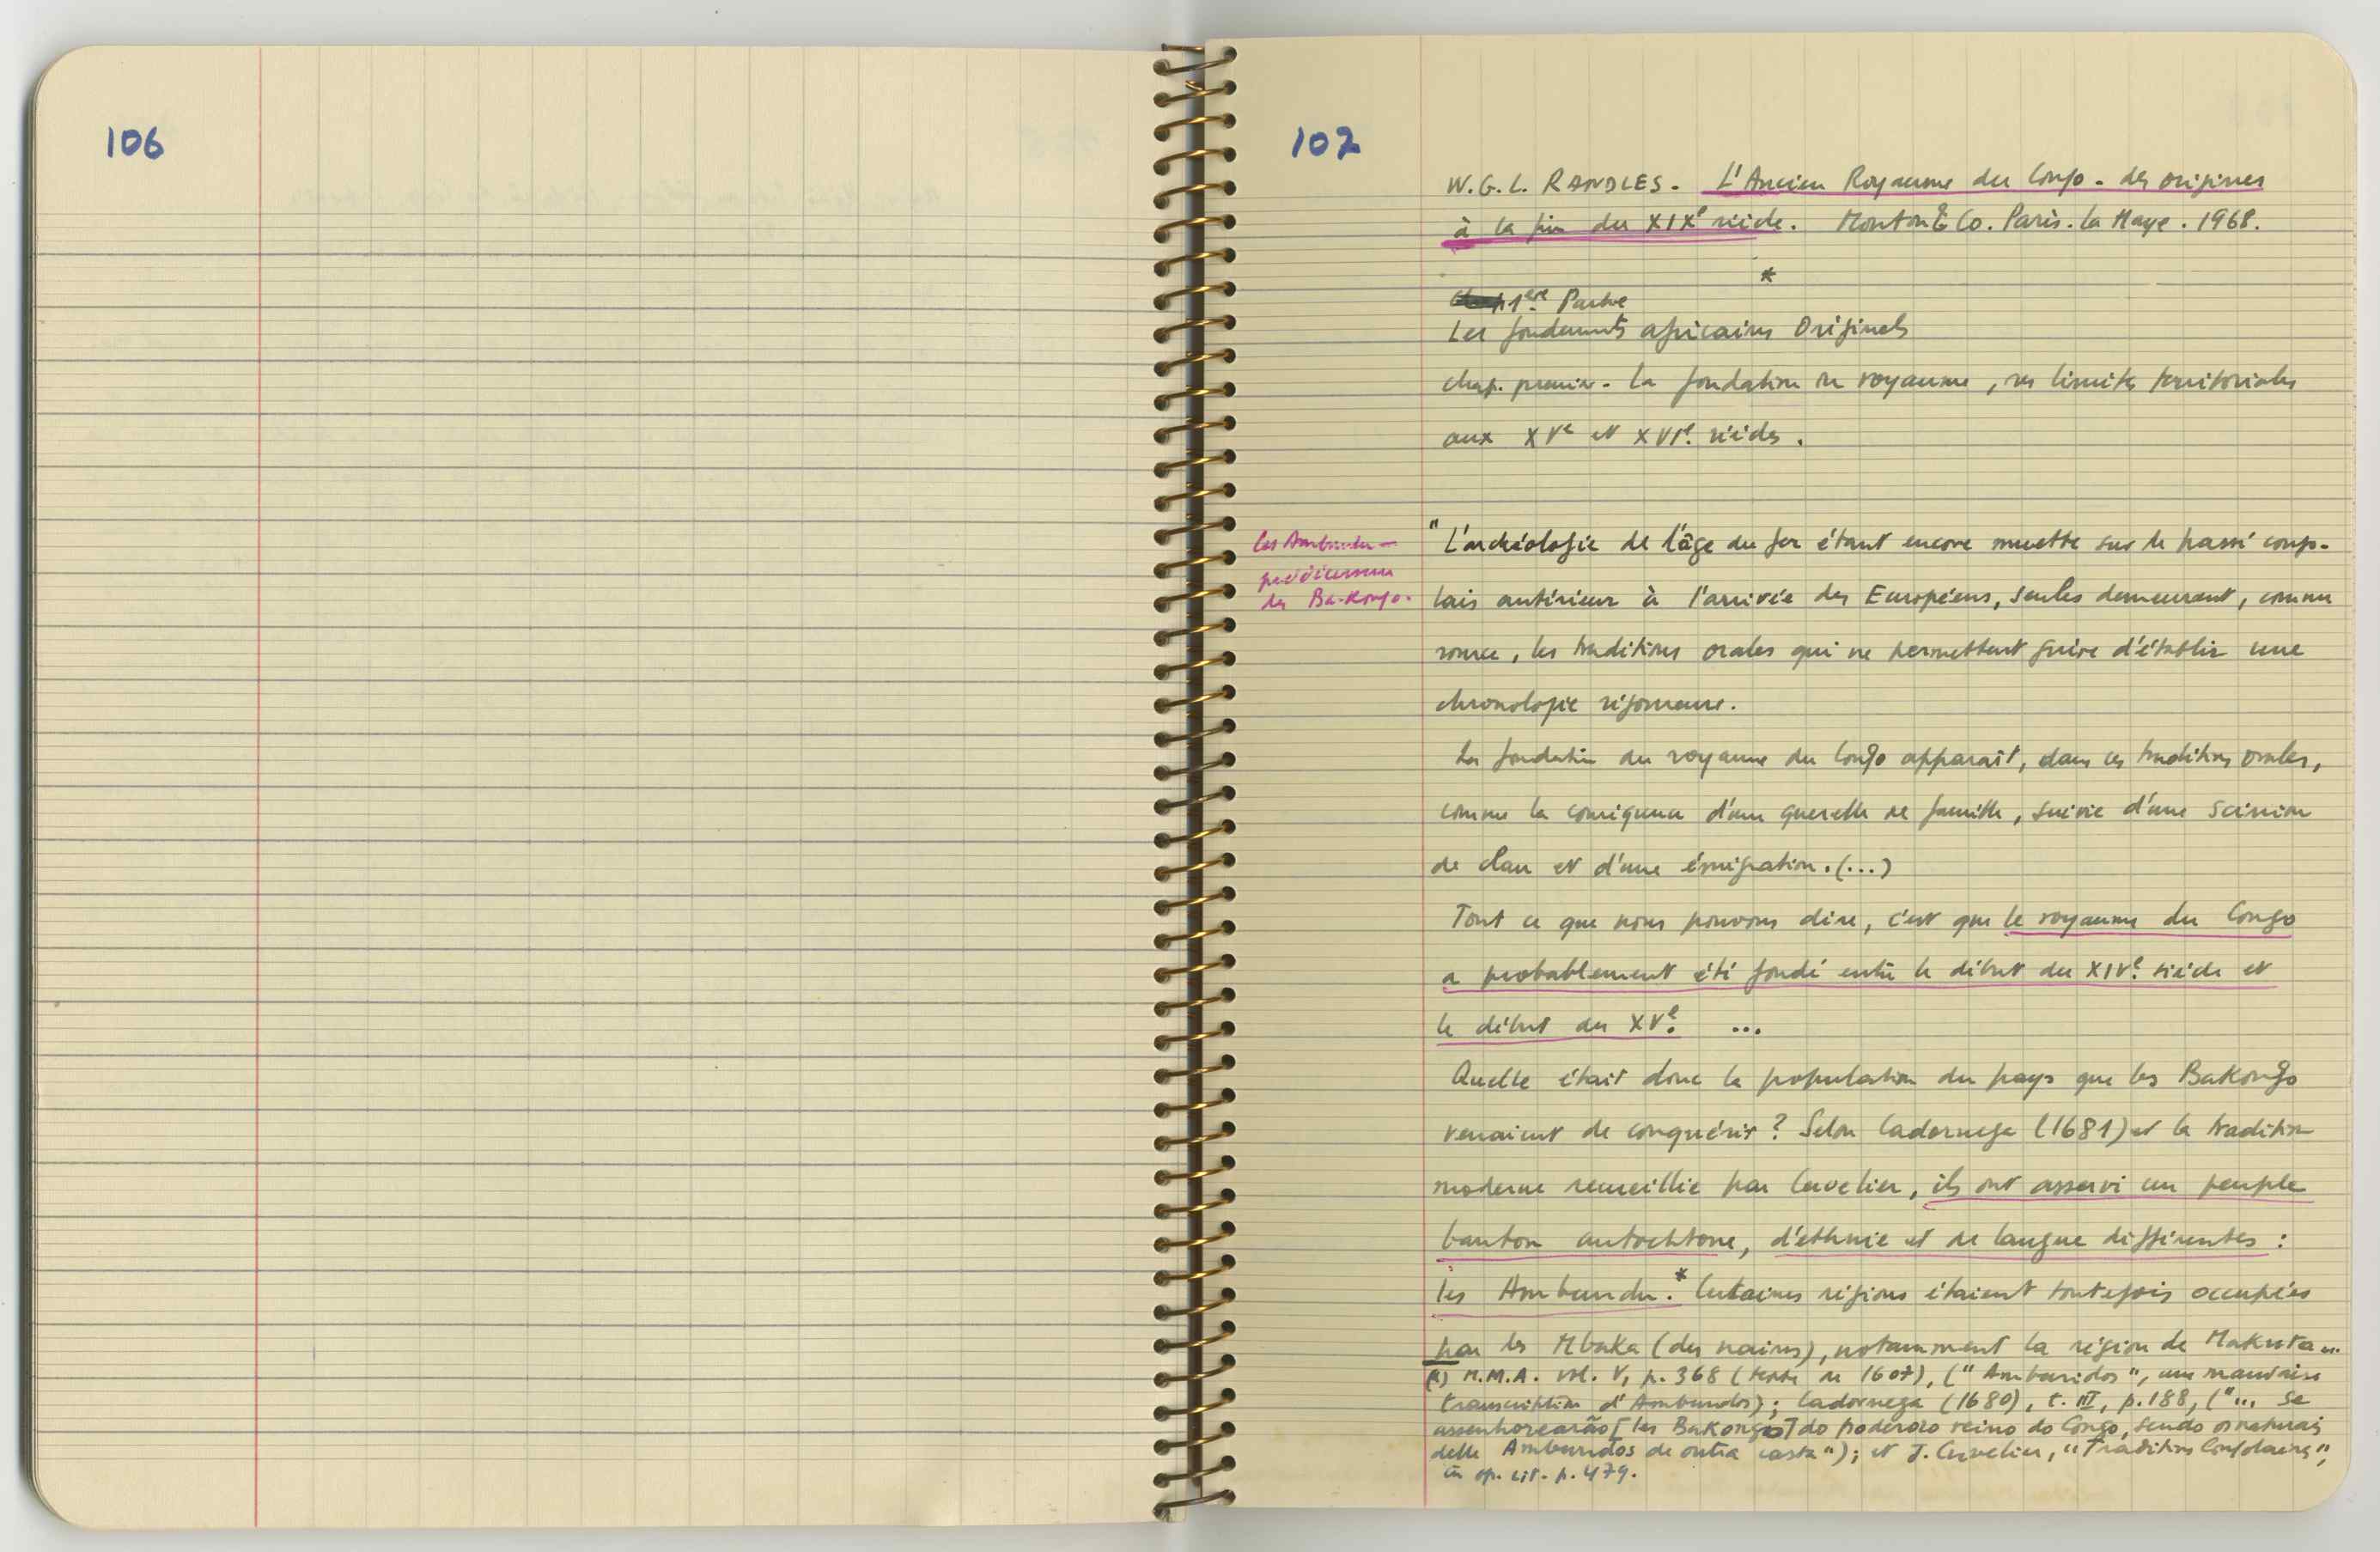 106
107
W.G.L. RANDLES. L'Ancien Royaume du Congo - des origines
à la fin du XIXe siècle. Mouton & Co. Paris. La Haye. 1968.
*
1ère Partie
Les fondements africains Originels
chap. premier - La fondation du royaume, ses limites territoriales
aux XVe et XVIe siècles.
les Ambundu -
prédécesseurs
des Ba-Kongo.
"L'archéologie de l'âge du fer étant encore muette sur le passé congo-
lais antérieur à l'arrivée des Européens, seules demeurent, comme
source, les traditions orales qui ne permettent guère d'établir une
chronologie rigoureuse.
La fondation du royaume du Congo apparaît, dans ces traditions orales,
comme la conséquence d'une querelle de famille, suivie d'une scission
de clan et d'une émigration. (...)
Tout ce que nous pouvons dire, c'est que le royaume du Congo
a probablement été fondé entre le début du XIVe siècle et
le début du XVe. ...
Quelle était donc la population du pays que les BaKongo
venaient de conquérir ? Selon Cadornega (1681) et la tradition
moderne recueillie par Cuvelier, ils ont asservi un peuple
bantou autochtone, d'ethnie et de langue différentes :
les Ambundu.* Certaines régions étaient toutefois occupées
par les Mbaka (des nains), notamment la région de Makuta...
(*) M.M.A. vol. V, p. 368 (texte de 1607), ("Ambundos", une mauvaise
transcription d'Ambundos); Cadornega (1680), t. III, p. 188, ("... se
assenhorearão [les BaKongo] do poderozo reino do Congo, sendo os naturais
delle Ambundos de outra casta"); et J. Cuvelier, "Traditions Congolaises",
in op. cit. p. 479.